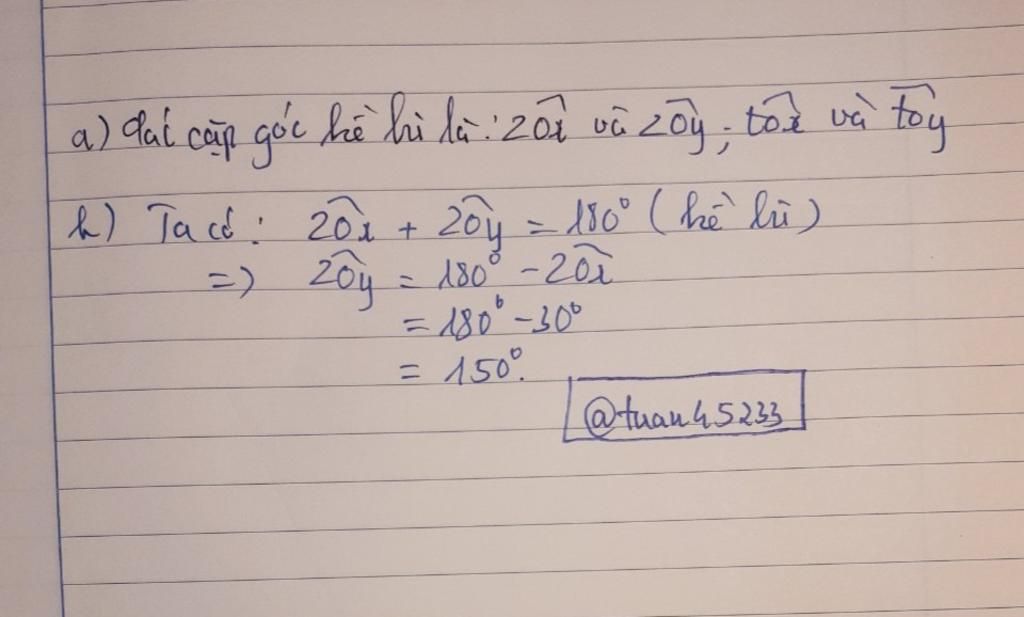 a) Hai cặp góc kề bù là: zOx và zOy; tOx và tOy
b) Ta có: zOx + zOy = 180° (kề bù)
=> zOy = 180° - zOx
= 180° - 30°
= 150°.
@tuan45233